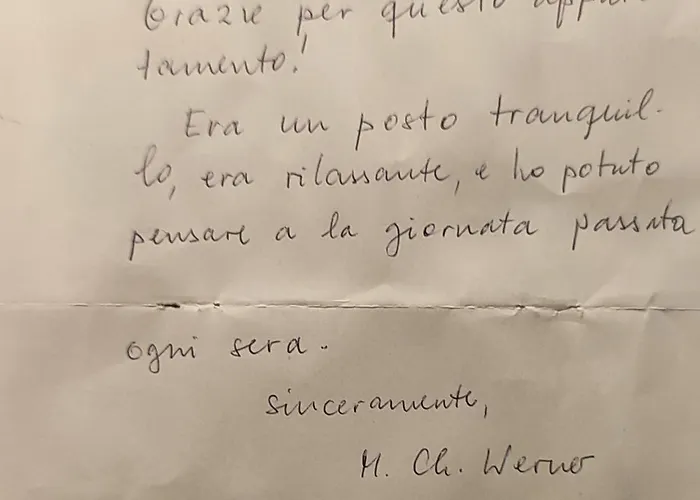 Grazie per questo appar-
tamento!
Era un posto tranquil-
lo, era rilassante, e ho potuto
pensare a la giornata passata
ogni sera.
sinceramente,
M. Ch. Werner